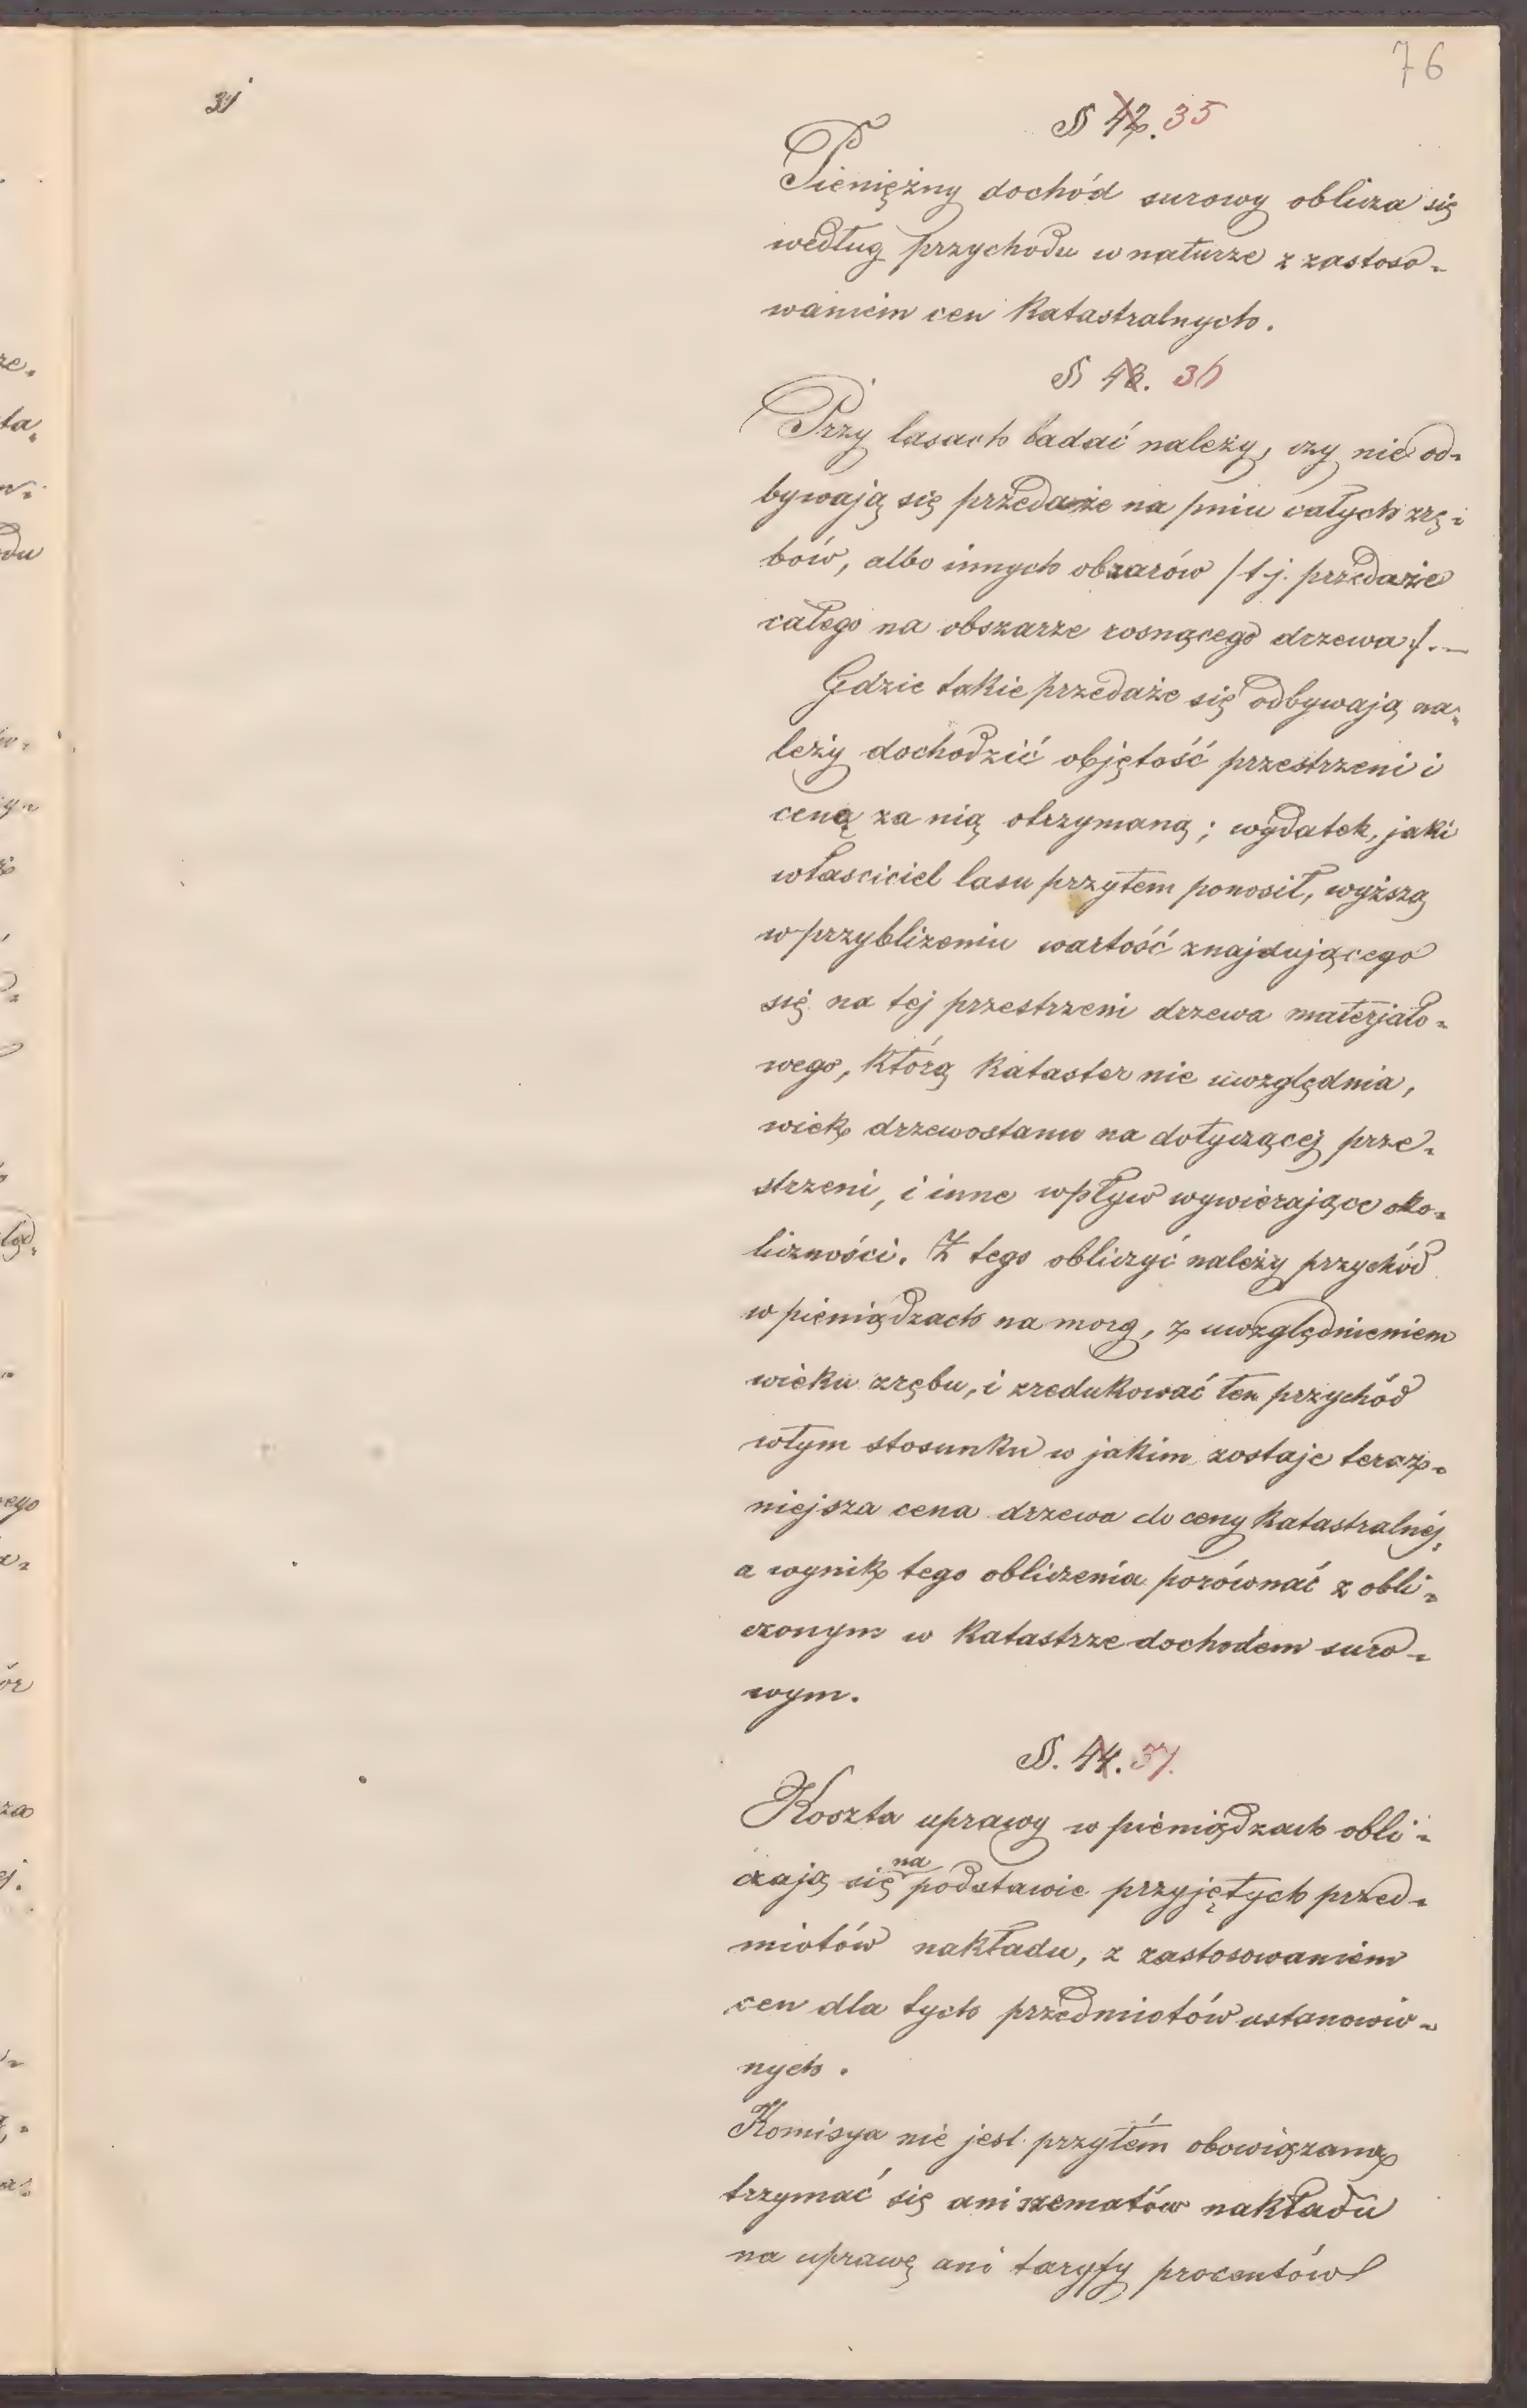 76
§ 42. 35
Pieniężny dochód surowy oblicza się
według przychodu w naturze z zastoso-
waniem cen katastralnych.
§ 43. 36
Przy lasach badać należy, czy nie od-
bywają się przedaże na pniu całych zrę-
bów, albo innych obzarów /t.j. przedaże
całego na obszarze rosnącego drzewa/.—
Gdzie takie przedaże się odbywają na-
leży dochodzić objętość przestrzeni i
cenę za nią otrzymaną; wydatek, jaki
własciciel lasu przytem ponosił, wyższą
w przybliżeniu wartość znajdującego
się na tej przestrzeni drzewa materjało-
wego, którą kataster nie uwzględnia,
wiek drzewostanu na dotyczącej prze-
strzeni, i inne wpływ wywierające oko-
liczności. Z tego obliczyć należy przychód
w pieniądzach na morg, z uwzględnieniem
wieku zrębu, i zredukować ten przychód
w tym stosunku w jakim zostaje teraz-
niejsza cena drzewa do ceny katastralnéj,
a wynik tego obliczenia porównać z obli-
czonym w katastrze dochodem suro-
wym.
§. 44. 37.
Koszta uprawy w pieniądzach obli-
czają się na podstawie przyjętych przed-
miotów nakładu, z zastosowaniem
cen dla tych przedmiotów ustanowio-
nych.
Komisya nie jest przytém obowiązana
trzymać się ani szematów nakładu
na uprawę ani taryfy procentów